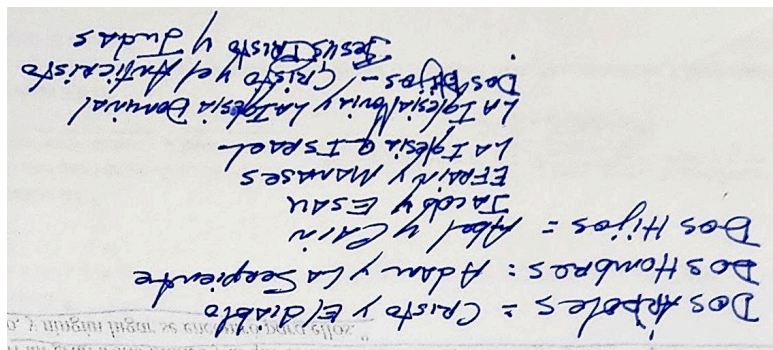 DOS ARBOLES = CRISTO y El diablo
DOS HOMBRES : Adan y La Serpiente
DOS Hijos = Abel y Cain
JACOB y ESAU
EFRAIN y MANASES
LA Iglesia e ISRAEL
LA Iglesia Novia y LA Iglesia Dominal
DOS Hijos - CRISTO y el Anticristo
JESUSCRISTO y Judas